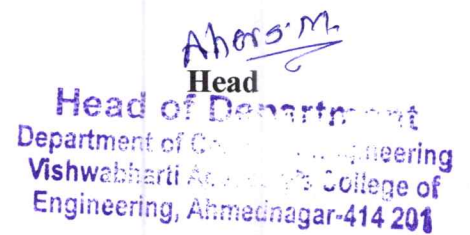 Head
Head of Department
Department of Engineering
Vishwabharti College of
Engineering, Ahmednagar-414 201